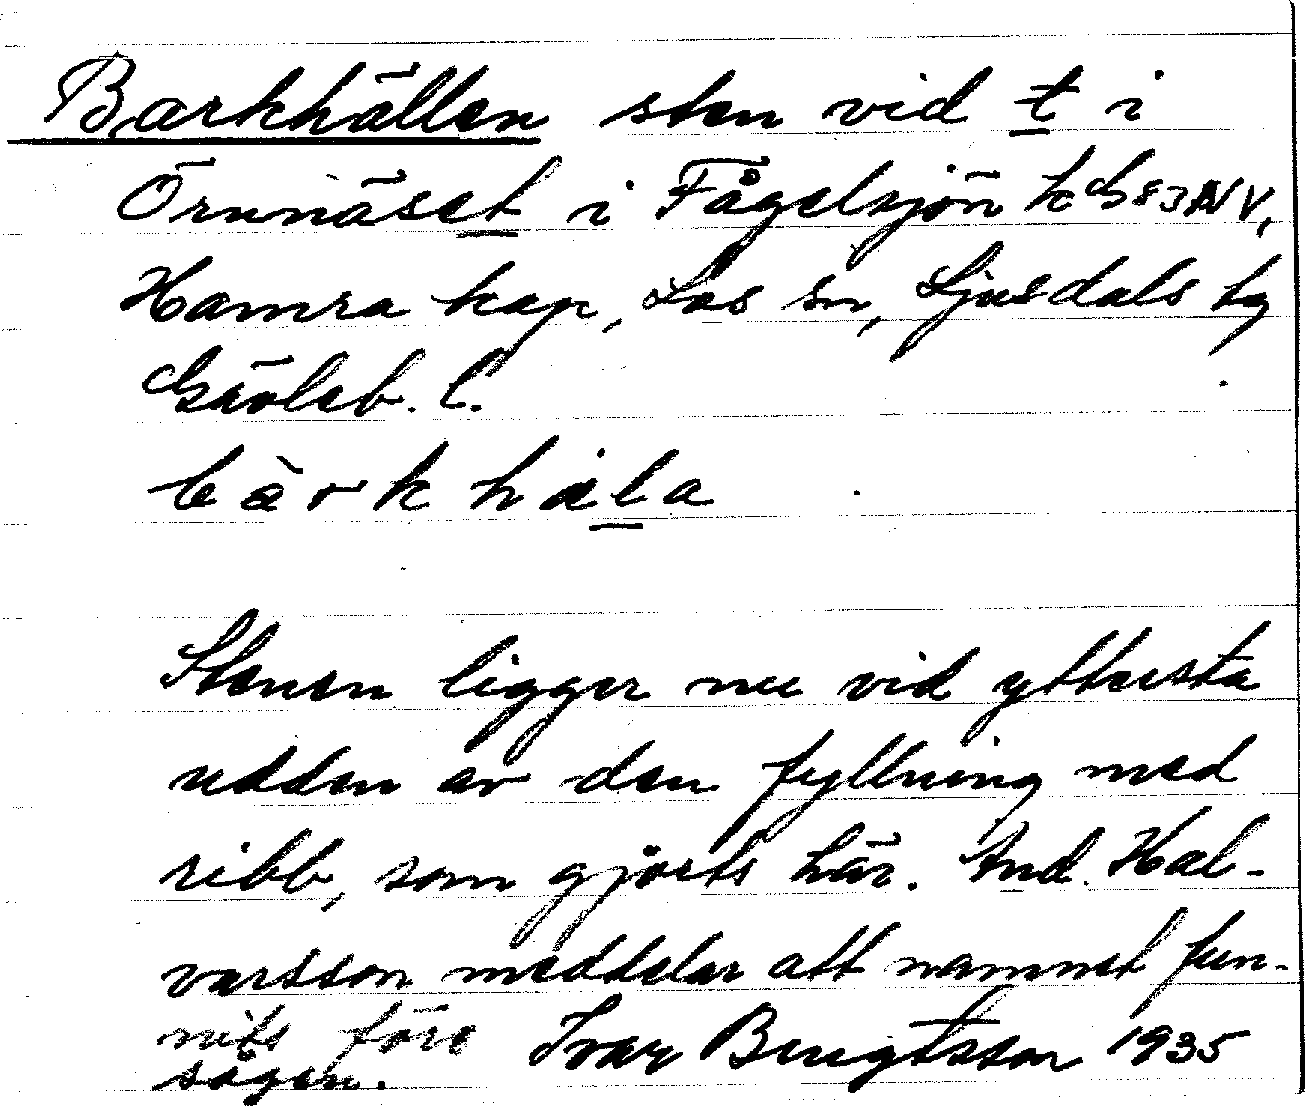 Barkhällen sten vid t i
Örnnäset i Fågelsjön kbl 83 NV,
Hamra kap, Los sn, Ljusdals tg
Gävleb. l.
bàrkhäla
Stenen ligger nu vid yttersta
udden av den fyllning med
ribb, som gjorts här. And. Hal-
varsson meddelar att namnet fun-
nits före Ivar Bengtsson 1935
sågen.